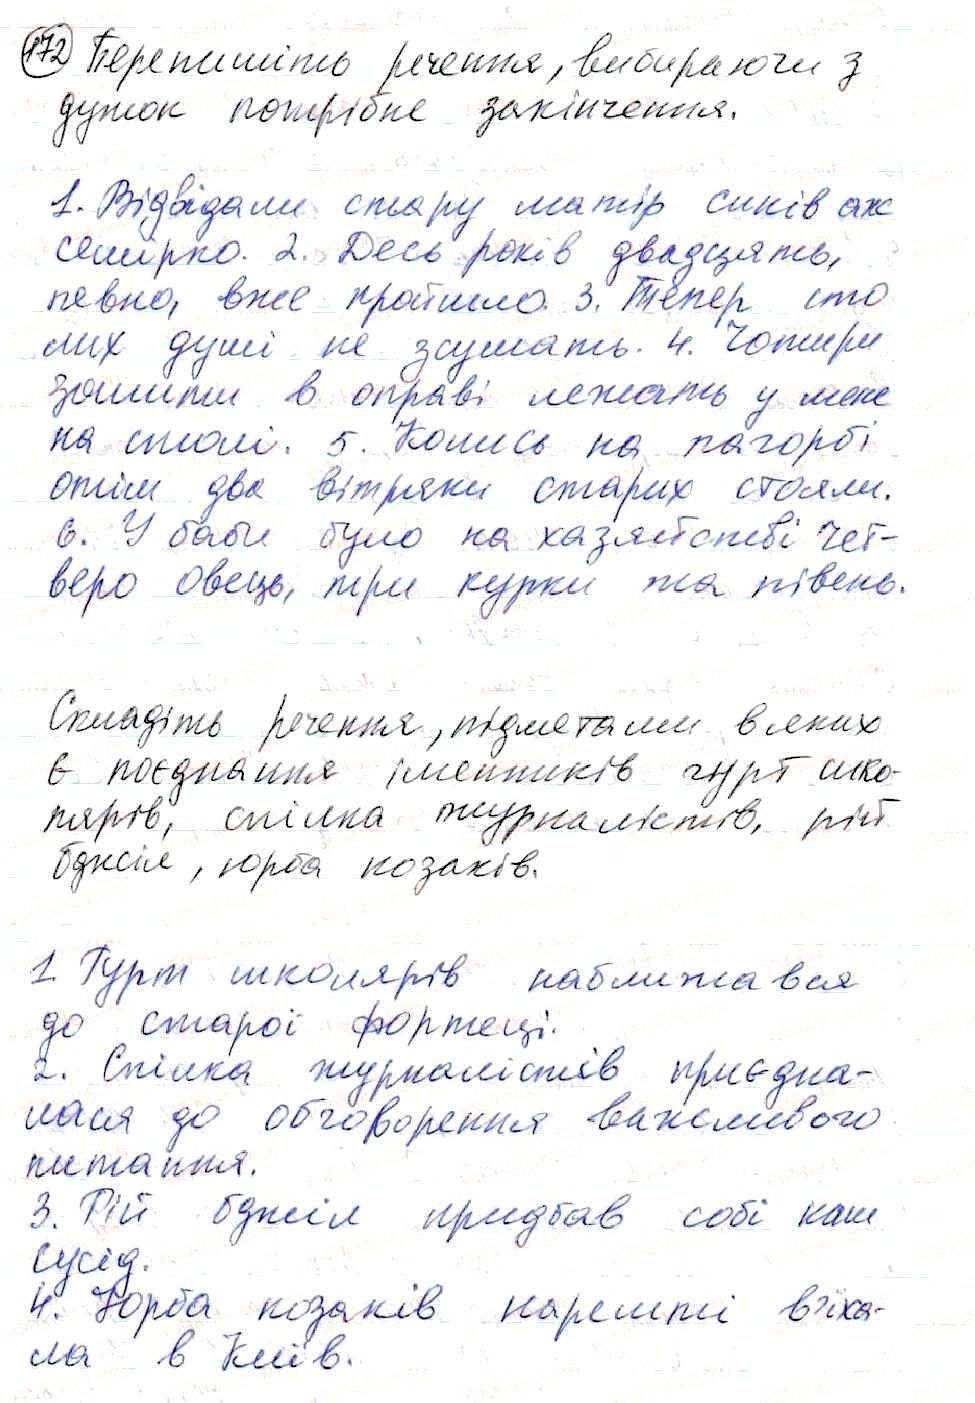 172 Перепишіть речення, вибираючи з
дужок потрібне закінчення.
1. Відвідали стару матір синів аж
семірко. 2. Десь років двадцять,
певно, вже пройшло. 3. Тепер сто
лих душі не зсушать. 4. Чотири
зошити в оправі лежать у мене
на столі. 5. Колись на пагорбі
отім два вітряки старих стояли.
6. У баби було на хазяйстві чет-
веро овець, три курки та півень.
Складіть речення, підметами в яких
є поєднання іменників гурт шко-
лярів, спілка журналістів, рій
бджіл, юрба козаків.
1 Гурт школярів наближався
до старої фортеці.
2. Спілка журналістів приєдна-
лася до обговорення важливого
питання.
3. Рій бджіл придбав собі наш
сусід.
4. Юрба козаків нарешті в'їха-
ла в Київ.